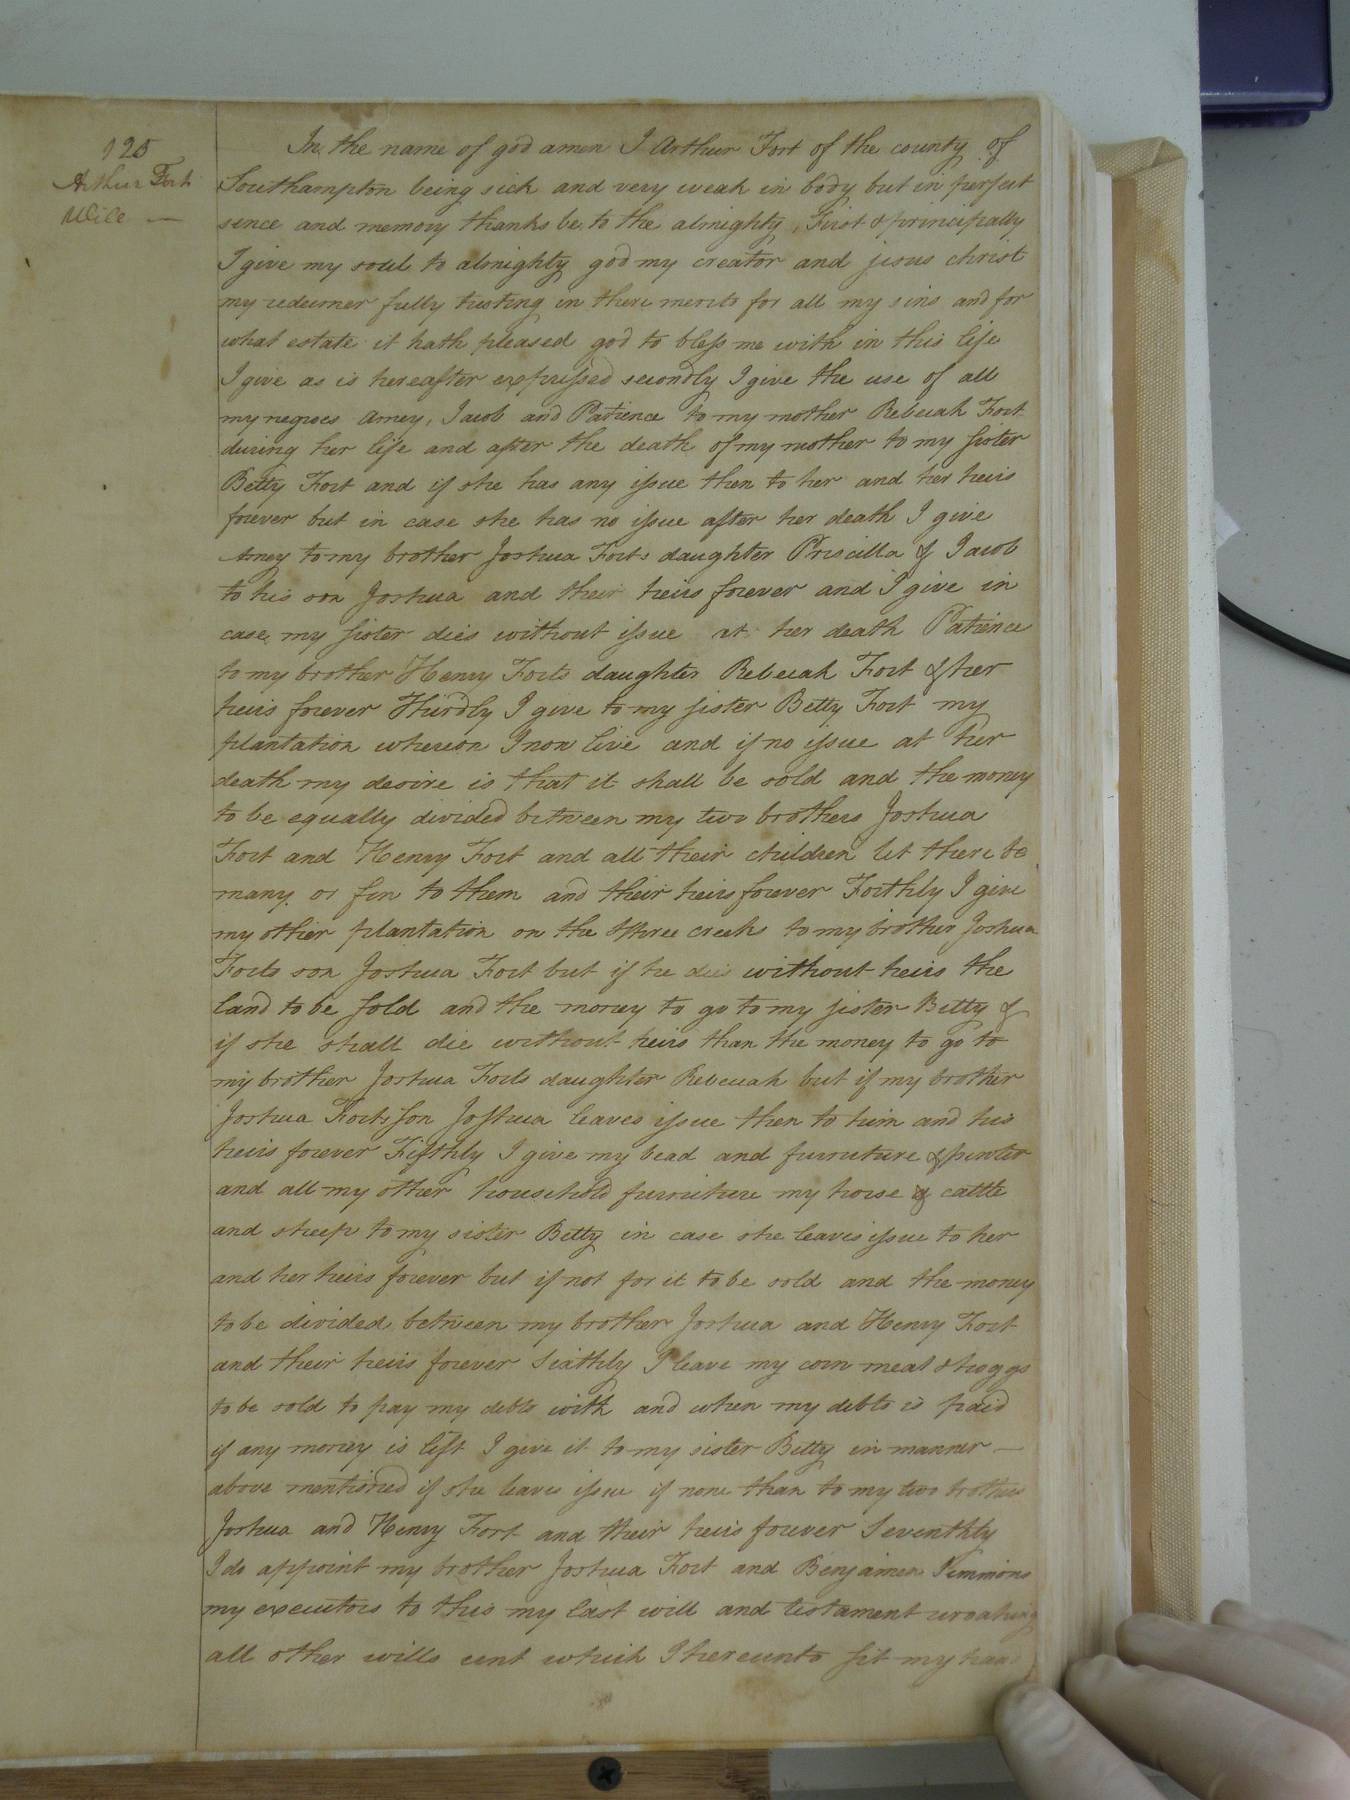 125
Arthur Forts
Will —
In the name of god amen I Arthur Fort of the county of
Southampton being sick and very weak in body but in perfect
sence and memory thanks be to the almighty, First & principally
I give my soul to almighty god my creator and jesus christ
my redeemer fully trusting in there merits for all my sins and for
what estate it hath pleased god to bless me with in this life
I give as is hereafter expressed secondly I give the use of all
my negroes Amey, Jacob and Patience to my mother Rebecah Fort
during her life and after the death of my mother to my sister
Betty Fort and if she has any issue then to her and her heirs
forever but in case she has no issue after her death I give
Amey to my brother Joshua Forts daughter Priscilla & Jacob
to his son Joshua and their heirs forever and I give in
case my sister dies without issue at her death Patience
to my brother Henry Forts daughter Rebecah Fort & her
heirs forever Thirdly I give to my sister Betty Fort my
plantation whereon I now live and if no issue at her
death my desire is that it shall be sold and the money
to be equally divided between my two brothers Joshua
Fort and Henry Fort and all their children let there be
many or few to them and their heirs forever Forthly I give
my other plantation on the three creeks to my brother Joshua
Forts son Joshua Fort but if he die without heirs the
land to be sold and the money to go to my sister Betty &
if she shall die without heirs than the money to go to
my brother Joshua Forts daughter Rebecah but if my brother
Joshua Forts son Joshua leaves issue then to him and his
heirs forever Fifthly I give my bead and furniture & pewter
and all my other household furniture my horse & cattle
and sheep to my sister Betty in case she leaves issue to her
and her heirs forever but if not for it to be sold and the money
to be divided between my brother Joshua and Henry Fort
and their heirs forever Sixthly I leave my corn meat & hoggs
to be sold to pay my debts with and when my debts is paid
if any money is left I give it to my sister Betty in manner —
above mentioned if she leaves issue if none than to my two brothers
Joshua and Henry Fort and their heirs forever Seventhly
I do appoint my brother Joshua Fort and Benjamen Simmons
my executors to this my last will and testament
all other wills unt which I hereunto sit my hand